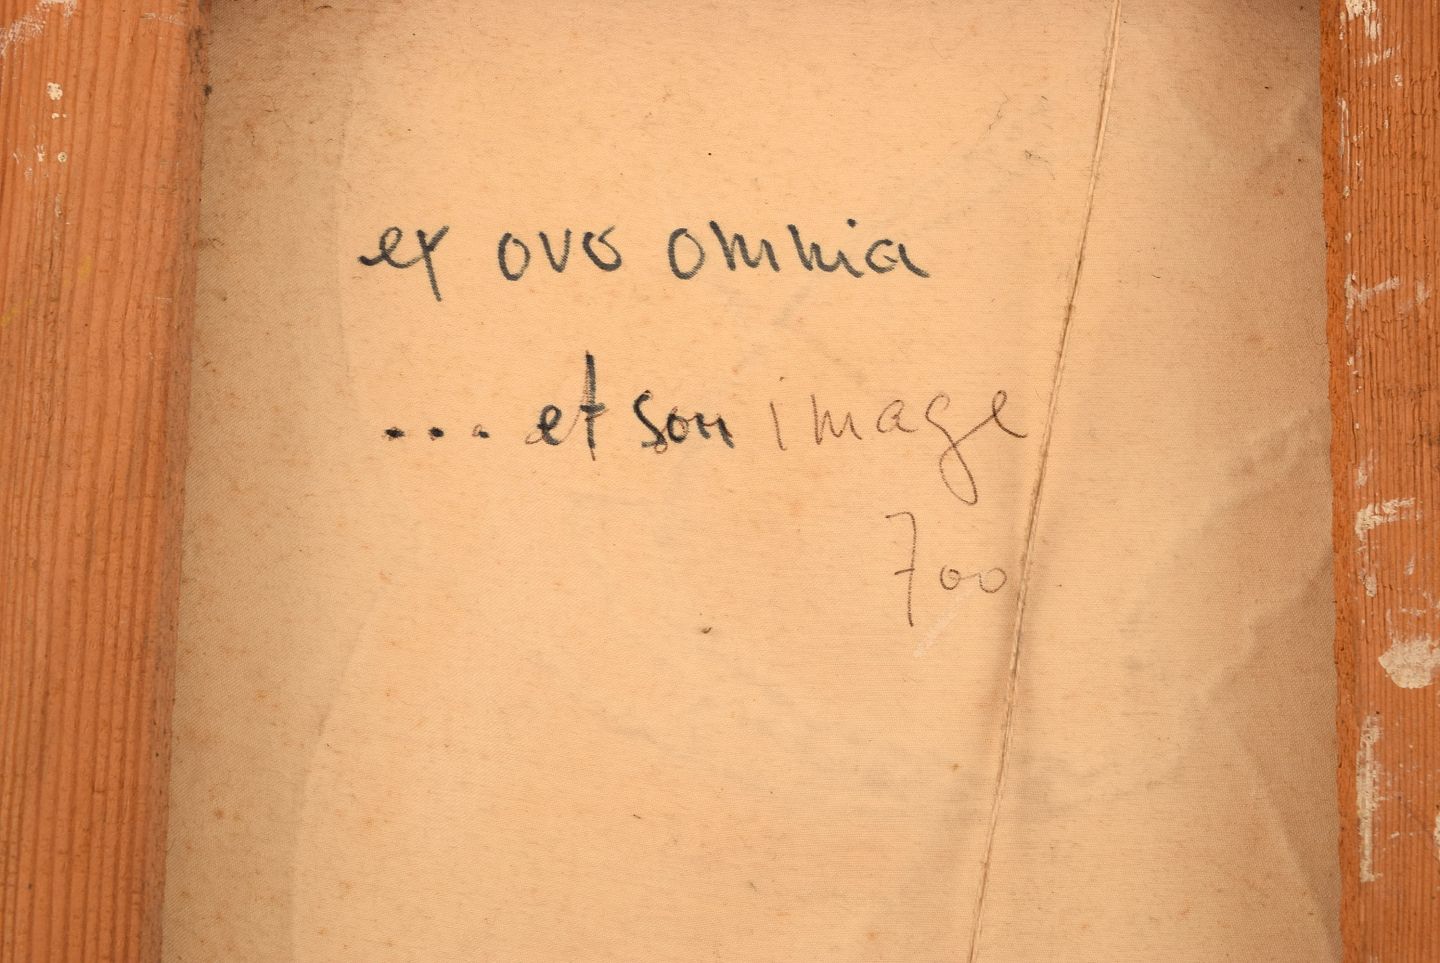 ex ovo omnia
... et son image
700